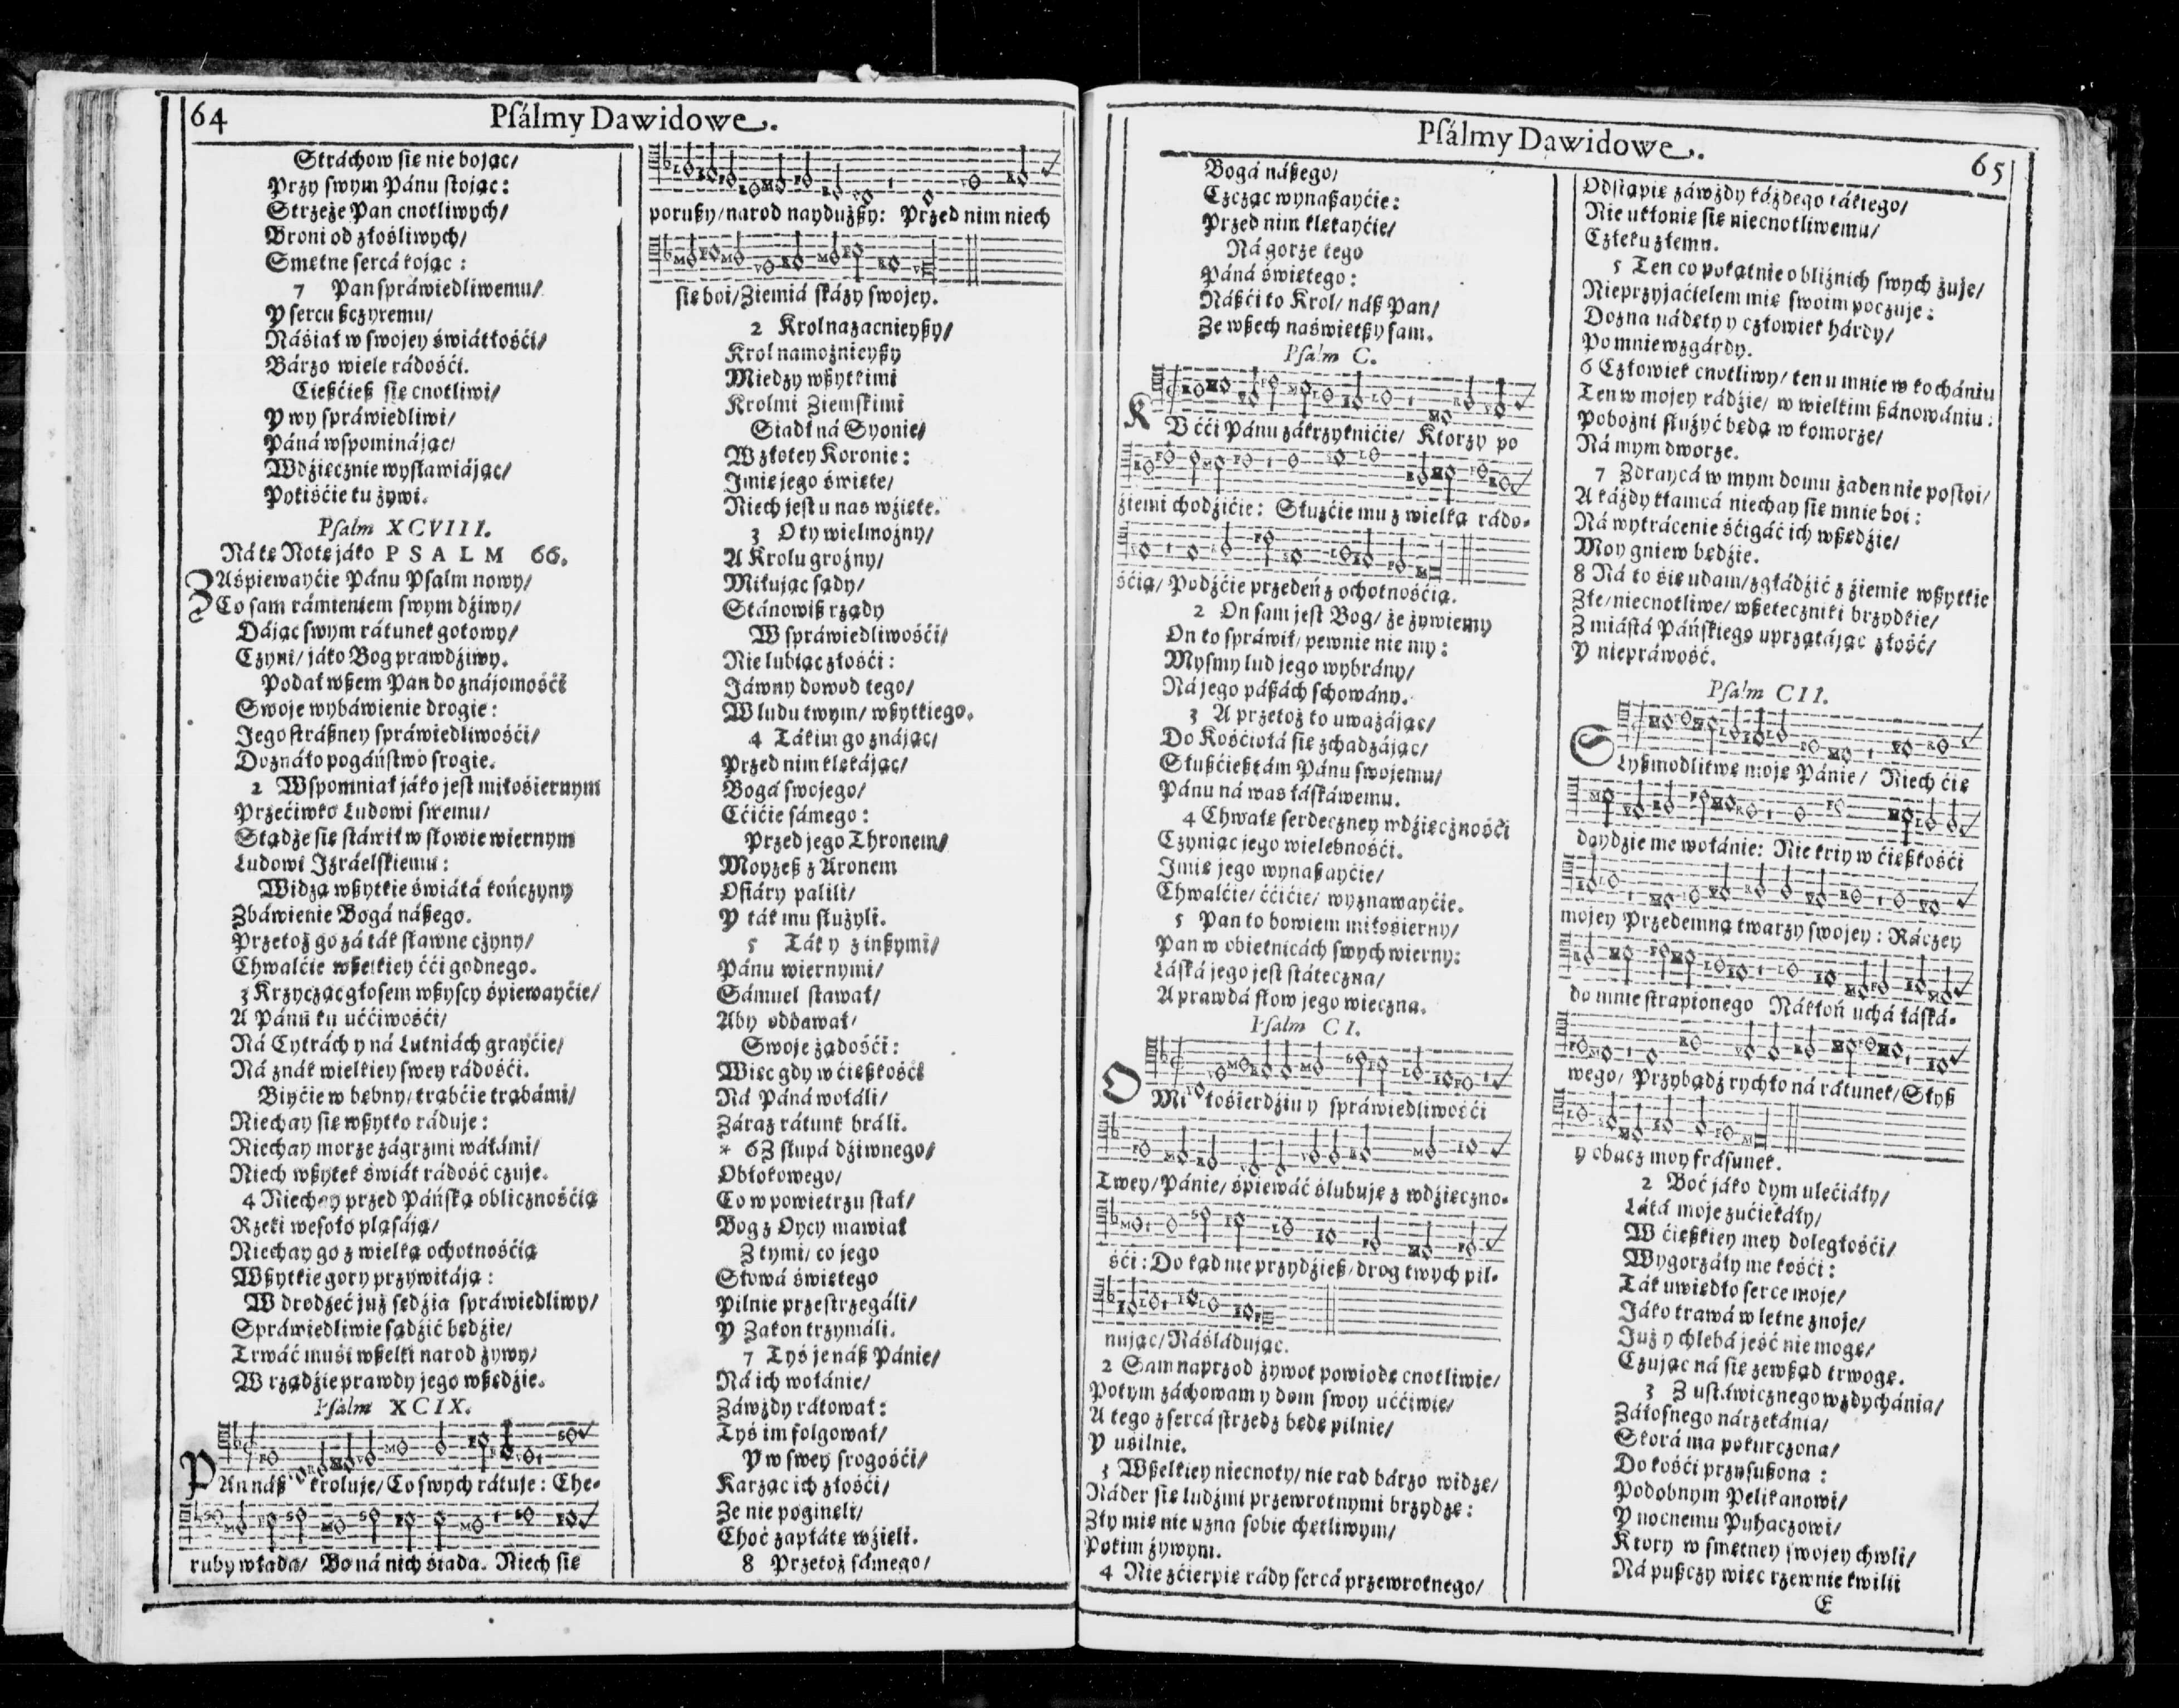 64
Psálmy Dawidowe.
Stráchow się nie bojąc/
Przy swym Pánu stojąc:
Strzeże Pan cnotliwych/
Broni od złośliwych/
Smętne sercá kojąc:
7 Pan spráwiedliwemu/
Y sercu szczyremu/
Náśiał w swojey świátłośći/
Bárzo wiele rádośći.
Cieszćiesz się cnotliwi/
Y wy spráwiedliwi/
Páná wspominájąc/
Wdźięcznie wysławiájąc/
Pokiśćie tu żywi.
Psalm XCVIII.
Ná tę Notę jáko PSALM 66.
ZAśpiewayćie Pánu Psalm nowy/
Co sam rámieniem swym dźiwy/
Dájąc swym rátunek gotowy/
Czyni/ jáko Bog prawdźiwy.
Podał wszem Pan do znájomośći
Swoje wybáwienie drogie:
Jego strászney spráwiedliwośći/
Doznáło pogáństwo srogie.
2 Wspomniał jáko jest miłośiernym
Przećiwko Ludowi swemu/
Stądże się stáwił w słowie wiernym
Ludowi Izráelskiemu:
Widzą wszytkie świátá kończyny
Zbáwienie Bogá nászego.
Przetoż go zá ták sławne czyny/
Chwalćie wszelkiey ććí godnego.
3 Krzycząc głosem wszyscy śpiewayćie/
A Pánu ku uććiwośći/
Ná Cytrách y ná Lutniách grayćie/
Ná znák wielkiey swey rádośći.
Biyćie w bębny/ trąbćie trąbámi/
Niechay się wszytko ráduje:
Niechay morze zágrzmi wáłámi/
Niech wszytek świát rádość czuje.
4 Niechay przed Páńską oblicznośćią
Rzeki wesoło pląsáją/
Niechay go z wielką ochotnośćią
Wszytkie gory przywitáją:
W drodzeć już sędźia spráwiedliwy/
Spráwiedliwie sądźić będźie/
Trwáć muśi wszelki narod żywy/
W rządźie prawdy jego wszędźie.
Psalm XCIX.
PAn nász kroluje/ Co swych rátuje: Che-
ruby włada/ Bo ná nich śiada. Niech się
poruszy/ narod nayduższy: Przed nim niech
się boi/ Ziemiá skázy swojey.
2 Krol nazacnieyszy/
Krol namożnieyszy
Miedzy wszytkimi
Krolmi Ziemskimi
Siadł ná Syonie/
W złotey Koronie:
Imię jego święte/
Niech jest u nas wźięte.
3 O ty wielmożny/
A Krolu groźny/
Miłując sądy/
Stánowisz rządy
W spráwiedliwośći/
Nie lubiąc złośći:
Jáwny dowod tego/
W ludu twym/ wszytkiego.
4 Tákim go znájąc/
Przed nim klękájąc/
Bogá swojego/
Cćićie sámego:
Przed jego Thronem/
Moyzesz z Aronem
Ofiáry palili/
Y ták mu służyli.
5 Ták y z inszymi/
Pánu wiernymi/
Sámuel stawał/
Aby oddawał/
Swoje żądośći:
Więc gdy w ćięszkośći
Ná Páná wołáli/
Záraz rátunk bráli.
* 6 Z słupá dźiwnego/
Obłokowego/
Co w powietrzu stał/
Bog z Oycy mawiał
Z tymi/ co jego
Słowá świętego
Pilnie przestrzegáli/
Y Zakon trzymáli.
7 Tyś je nász Pánie/
Ná ich wołánie/
Záwżdy rátował:
Tyś im folgował/
Y w swey srogośći/
Karząc ich złośći/
Ze nie poginęli/
Choć zapłátę wźięli.
8 Przetoż sámego/
Psálmy Dawidowe.
65
Bogá nászego/
Czcząc wynaszayćie:
Przed nim klękayćie/
Ná gorze tego
Páná świętego:
Nászći to Krol/ nász Pan/
Ze wszech naświętszy sam.
Psalm C.
KU ććí Pánu zákrzyknićie/ Ktorzy po
źiemi chodźićie: Służćie mu z wielką rádo-
śćią/ Podźćie przedeń z ochotnośćią.
2 On sam jest Bog/ że żywiemy
On to spráwił/ pewnie nie my:
Mysmy lud jego wybrány/
Ná jego pászách schowány.
3 A przetoż to uważájąc/
Do Kośćiołá się zchadzájąc/
Słuszćiesz tám Pánu swojemu/
Pánu ná was łáskáwemu.
4 Chwałę serdeczney wdźięcznośći
Czyniąc jego wielebnośći.
Imię jego wynaszayćie/
Chwalćie/ ććićie/ wyznawayćie.
5 Pan to bowiem miłośierny/
Pan w obietnicách swych wierny:
Láská jego jest státeczna/
A prawdá słow jego wieczna.
Psalm CI.
O Miłośierdźiu y spráwiedliwośći
Twey/ Pánie/ śpiewáć ślubuję z wdźięczno-
śći: Do kąd mę przydźiesz/ drog twych pil-
nując/ Náśládując.
2 Sam naprzod żywot powiodę cnotliwie/
Potym záchowam y dom swoy uććiwie/
A tego z sercá strzedz będę pilnie/
Y uśilnie.
3 Wszelkiey niecnoty/ nie rad bárzo widzę/
Náder się ludźmi przewrotnymi brzydzę:
Zły mię nie uzna sobie chętliwym/
Pokim żywym.
4 Nie zćierpię rády sercá przewrotnego/
Odstąpię záwżdy káżdego tákiego/
Nie ukłonię się niecnotliwemu/
Człeku złemu.
5 Ten co pokątnie o bliźnich swych żuje/
Nieprzyjaćielem mię swoim poczuje:
Dozna nádęty y człowiek hárdy/
Po mnie wzgárdy.
6 Człowiek cnotliwy/ ten u mnie w kochániu
Ten w mojey rádźie/ w wielkim szánowániu:
Pobożni służyć będą w komorze/
Ná mym dworze.
7 Zdraycá w mym domu żaden nie postoi/
A káżdy kłamcá niechay się mnie boi:
Ná wytrácenie śćigáć ich wszędźie/
Moy gniew będźie.
8 Ná to się udam/ zgłádźić z źiemie wszytkie
Złe/ niecnotliwe/ wszeteczniki brzydkie/
Z miástá Páńskiego uprzątájąc złość/
Y niepráwość.
Psalm CII.
SLysz modlitwę moję Pánie/ Niech ćię
doydzie me wołánie: Nie kriy w ćięszkośći
mojey Przedemną twarzy swojey: Ráczey
do mnie strapionego Nákłoń uchá łáská-
wego/ Przybądź rychło ná rátunek/ Słysz
y obacz moy frásunek.
2 Boć jáko dym ulećiáły/
Látá moje zućiekáły/
W ćięszkiey mey doległośći/
Wygorzáły me kośći:
Ták uwiędło serce moje/
Jáko trawá w letne znoje/
Już y chlebá jeść nie mogę/
Czując ná się zewsząd trwogę.
3 Z ustáwicznego wzdychánia/
Záłosnego nárzekánia/
Skorá ma pokurczona/
Do kośći przysuszona:
Podobnym Pelikanowi/
Y nocnemu Puhaczowi/
Ktory w smętney swojey chwli/
Ná puszczy więc rzewnie kwilii
E